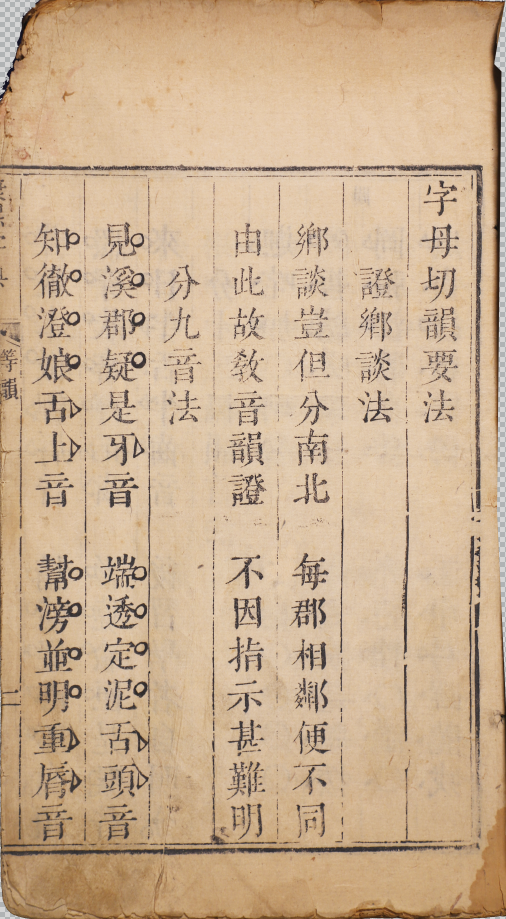 字母切韻要法
證鄉談法
鄉談豈但分南北　每郡相鄰便不同
由此故教音韻證　不因指示甚難明
分九音法
見溪郡疑是牙音　端透定泥舌頭音
知徹澄娘舌上音　幫滂並明重脣音
等韻
二